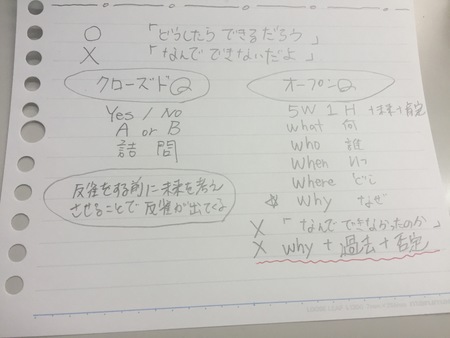 ○ 「どうしたら できるだろう」
× 「なんで できないだよ」
クローズドQ
Yes / No
A or B
詰 問
反省をする前に未来を考え
させることで 反省が出てくる
オープンQ
5W1H +未来+肯定
what 何
who 誰
when いつ
where どこ
☆ why なぜ
× 「なんで できなかったのか」
× why + 過去 + 否定